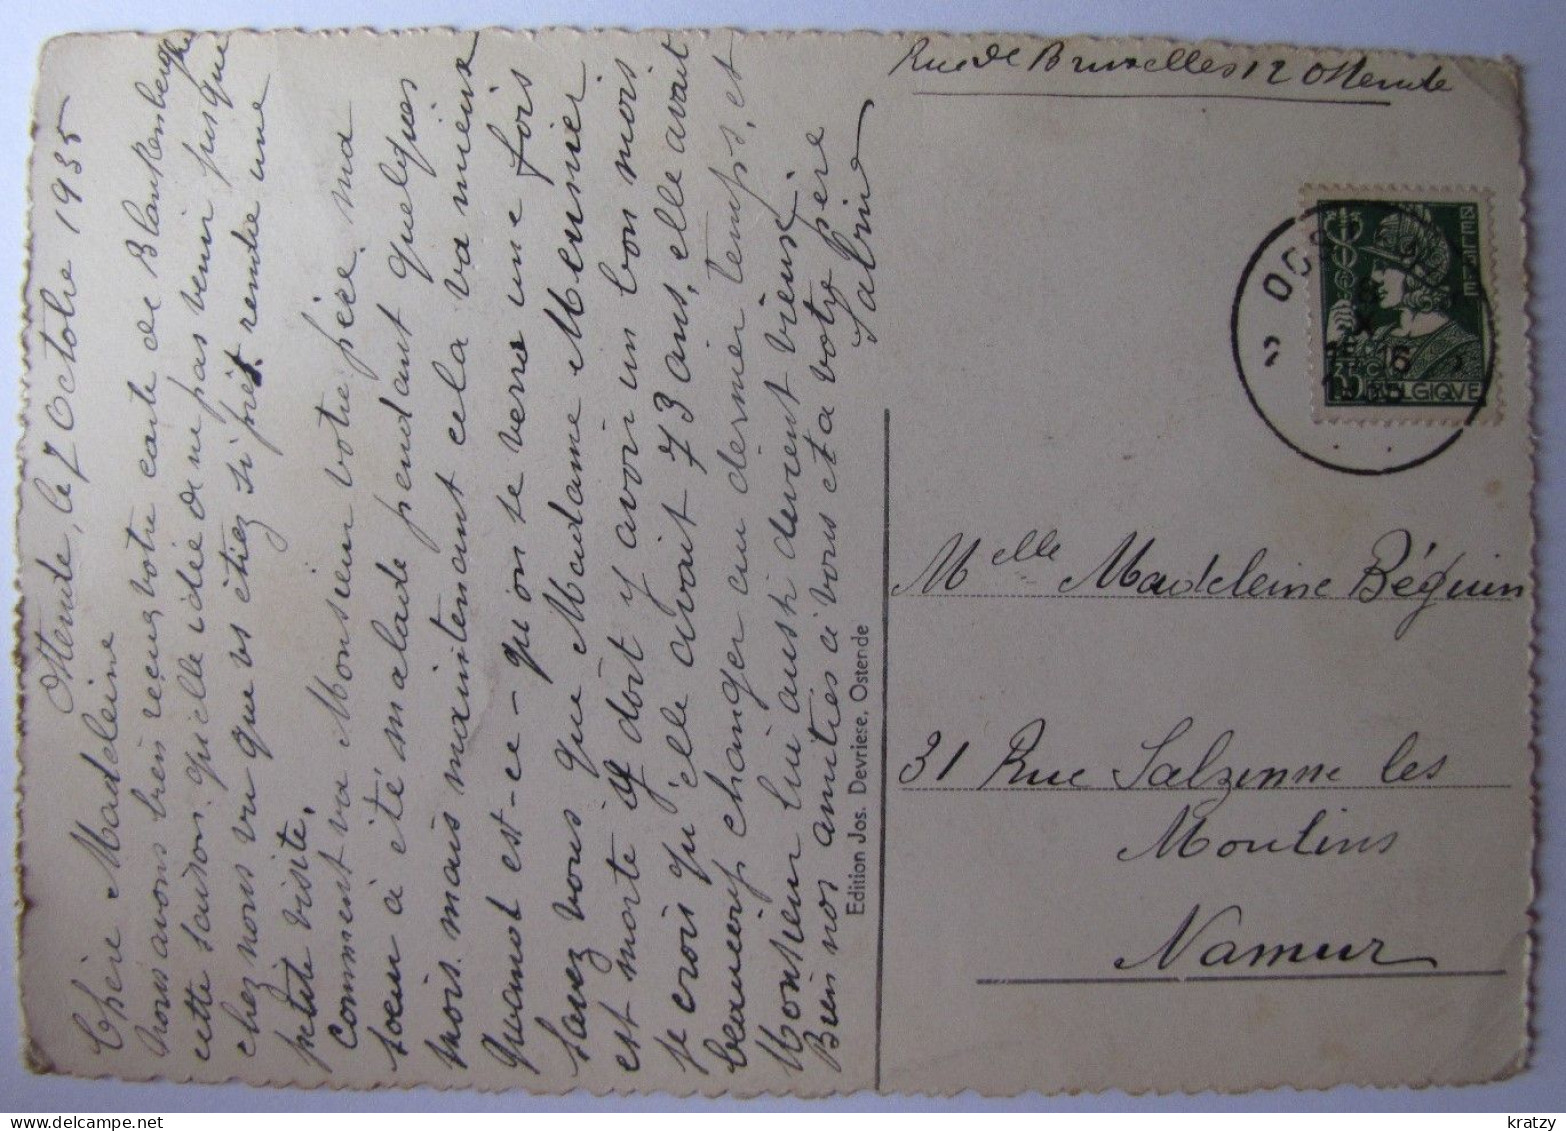 Ostende, le 7 Octobre 1935
Chère Madeleine
Nous avons bien reçu votre carte de Blankenberghe
cette saison. quelle idée de ne pas venir jusque
chez nous vu que vs étiez si près rendre une
petite visite.
Comment va Monsieur votre père, ma
soeur à été malade pendant quelques
mois. mais maintenant cela va mieux
Quand est-ce-qu'on se verra une fois
Savez vous que Madame Meunier
est morte il doit y avoir un bon mois
je crois qu'elle avait 73 ans, elle avait
beaucoup changer au dernier temps, et
Monsieur lui aussi devient vieux.
Bien nos amitiés à vous et à votre père
Sabine
Edition Jos. Devriese, Ostende
Rue de Bruxelles 12 Ostende
BELGIQUE
1935
Melle Madeleine Béguin
31 Rue Salzinne les
Moulins
Namur
kratzy